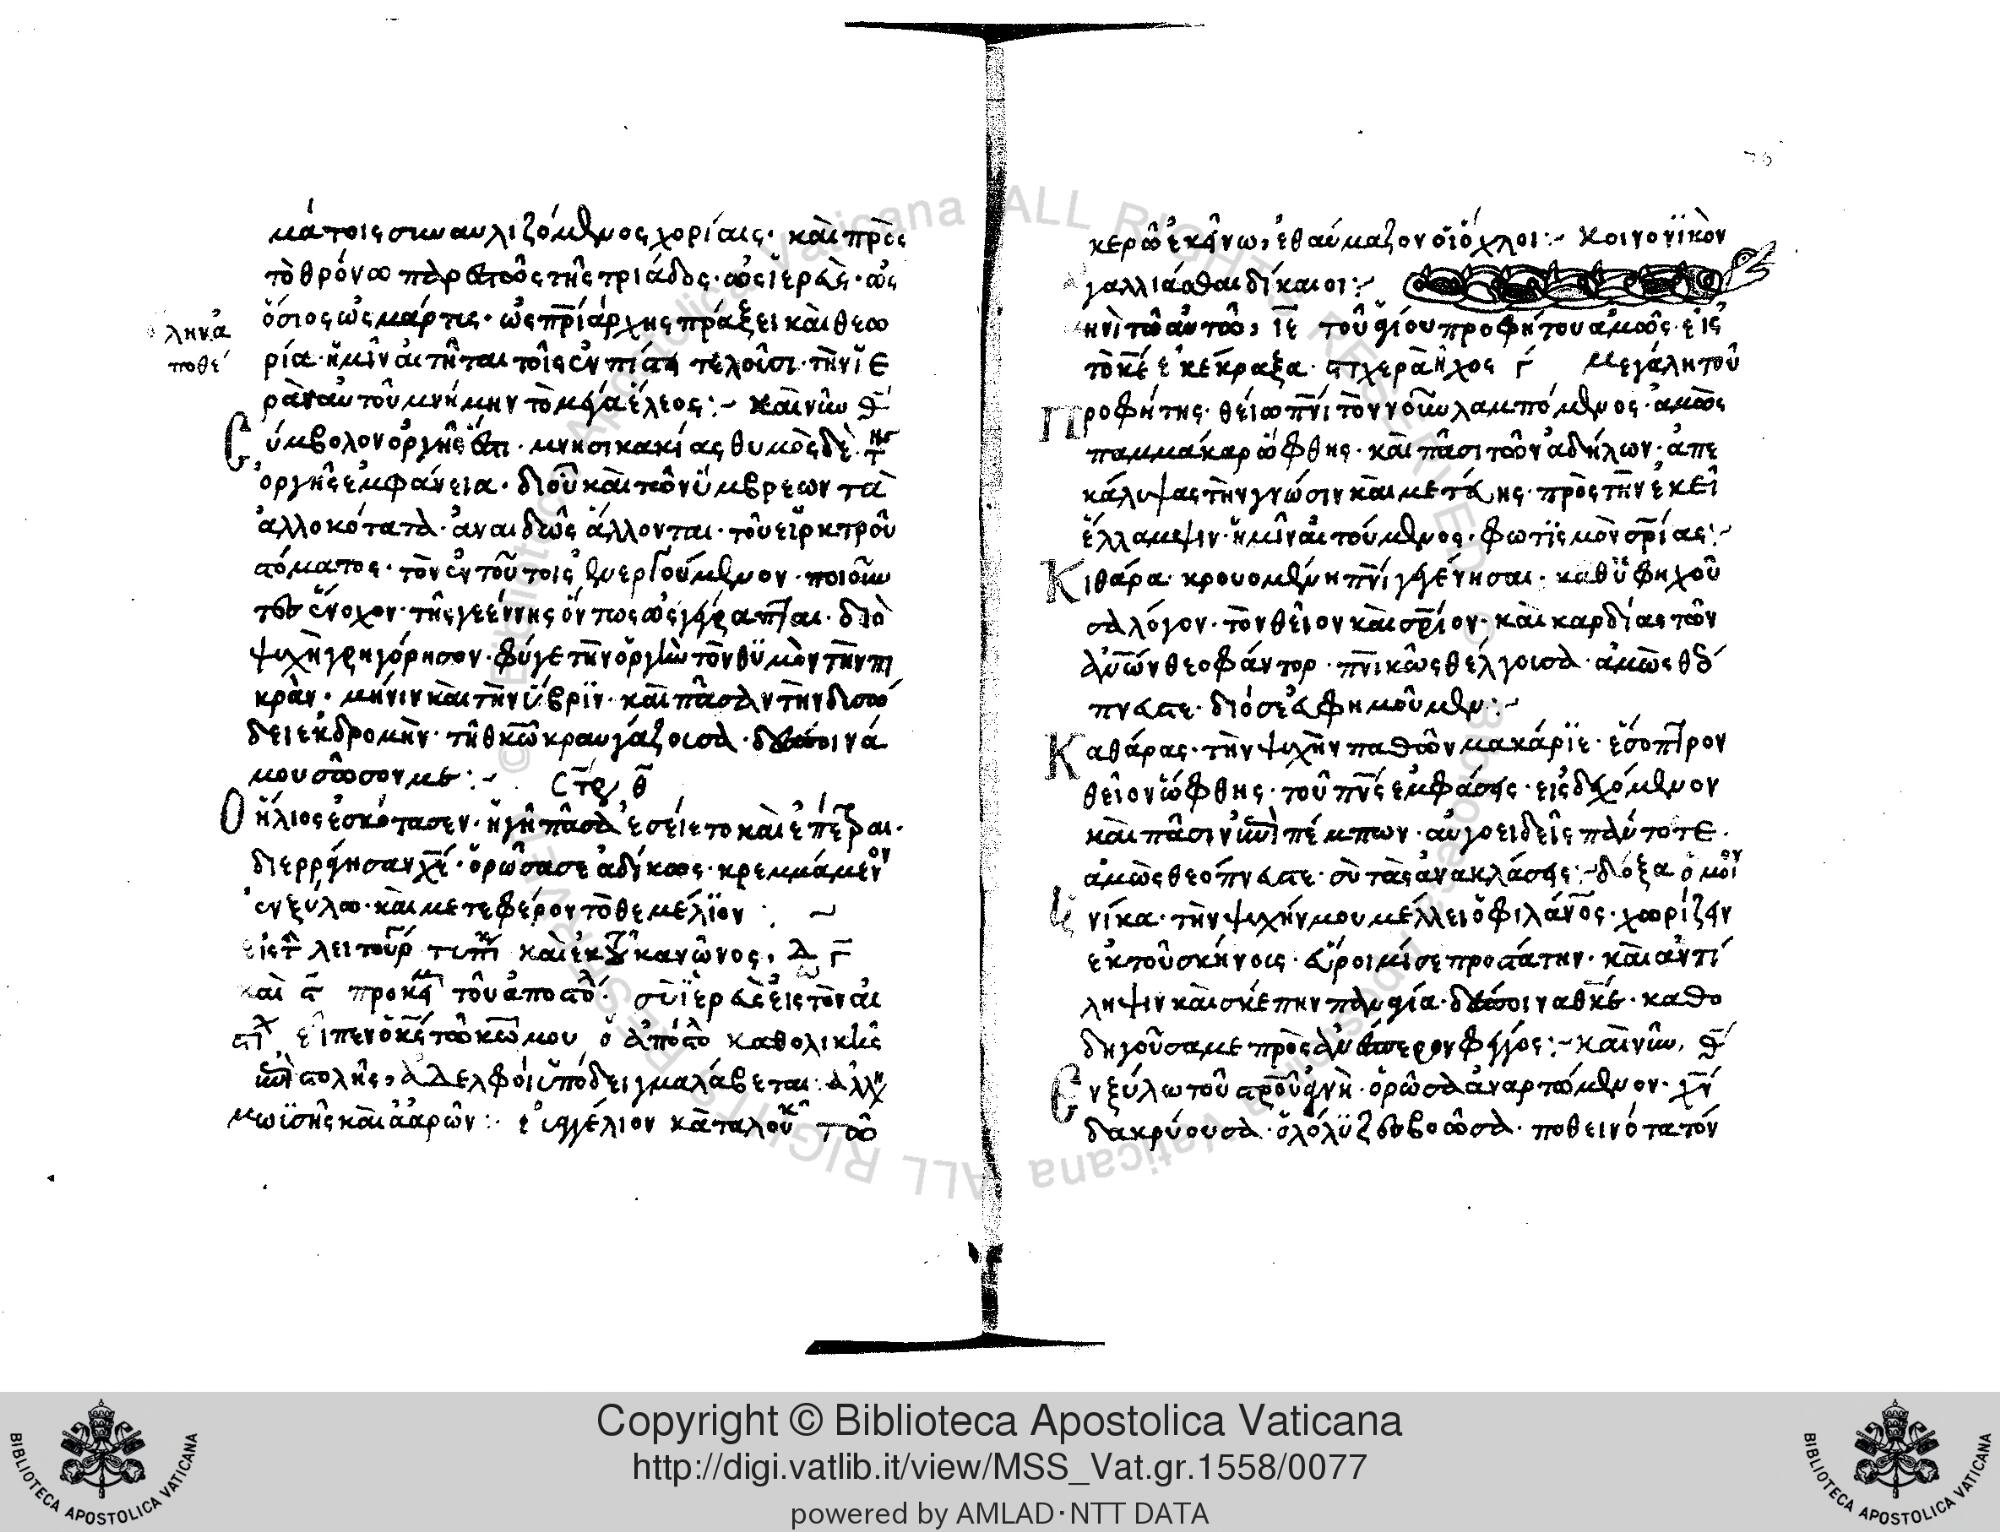 μάτοις συναυλιζόμενος χορίαις· καὶ πρὸς
τὸ θρόνω παρεστὼς τῆς τριάδος· ὡς ἱερεὺς· ὡς
ὅσιος ὡς μάρτις· ὡς πριάρχης πράξει καὶ θεω
ρία· ἡμῖν αἰτῆται τοῖς ἐν πίστη τελοῦσι· τὴν ἱε
ρὰν αὐτοῦ μνήμην τὸ μέγα ἔλεος:~ Καὶ νῦν
ληνα
ποθε
Σύμβολον ὀργῆς ἐστι· μνησικακίας θυμὸς δὲ
ὀργῆς ἐμφάνεια· διοῦ καὶ τῶν ὕμβρεων τὰ
ἀλλοκότατα· ἀναιδῶς ἄλλονται· τοῦ εἱρκτροῦ
στόματος· τὸν ἐν τούτοις ἐνεργούμενον· ποιοῦν
τες ἔνοχον· τῆς γεέννης ὄντως ὡς γέγραπται· διὸ
ψυχὴ γρηγόρησον· φύγε τὴν ὀργὴν τὸν θυμὸν τὴν πι
κρὰν· μήνιν καὶ τὴν ὕβριν· καὶ πᾶσαν τὴν δισώ
δει ἐκδρομὴν· τῆ θκω κραυγάζουσα· δέσποινά
μου σῶσον με:~ θ
Ὁ ἥλιος ἐσκότασεν· ἡ γῆ πᾶσα ἐσείετο καὶ ἐ πέτραι·
διερράγησαν χέ· ὁρῶσα σε ἀδίκως· κρεμμάμενον
ἐν ξύλω· καὶ μετεφέρον τὸ θεμέλιον
εἰς τ λειτουργ τυπ καὶ ἐκ κανῶνος,
καὶ προκ τοῦ ἀποστ· σὺ ἱερεὺς εἰς τὸν αἰ
στ εἶπεν ὁ κς τῶ κω μου ὁ ἀπόστο καθολικῆς
ἐπιστολῆς, ἀδελφοὶ ὑπόδειγμα λάβεται ἀλλη
μωϊσῆς καὶ ἀαρῶν: εὐαγγέλιον κατα λουκ τῶ
κερῶ ἐκείνω, ἐθαύμαζον οἱ ὄχλοι:~ Κοινονϊκὸν
γαλλιᾶσθαι δίκαιοι:~
μηνὶ τῶ αὐτῶ, ιε τοῦ ἁγίου προφήτου ἀμώς· εἰς
τὸ κε ἐκέκραξα· στιχερὰ ἦχος γ Μεγάλη τοῦ
Προφήτης· θείω πνι τὸν νοῦν λαμπόμενος· ἀμὼς
παμμάκαρ ὤφθης· καὶ πᾶσι τῶν ἀδήλων· ἀπε
κάλυψας τὴν γνώσιν καὶ μετάστης· πρὸς τὴν ἐκεῖ
ἔλλαμψιν· ἡμῖν αἰτούμενος· φωτϊσμὸν σρίας:~
Κιθάρα· κρουομένη πνι γεγένησαι· καθυφηχοῦ
σα λόγον· τὸν θεῖον καὶ σρίον· καὶ καρδίας τῶν
ἀνων θεοφάντορ· πνικῶς θέλγουσα· ἀμὼς θεό
πνευστε· διό σε εὐφημοῦμεν:~
Καθάρας· τὴν ψυχὴν παθῶν μακάριε· ἔσοπτρον
θεῖον ὤφθης· τοῦ πνς ἐμφάσεις· εἰσδεχόμενον
καὶ πᾶσιν πέμπων· αὐγοειδεῖς πάντοτε·
ἀμὼς θεόπνευστε· σὺ τὰς ἀνακλάσεις:~ δόξα ὁμοῖ
νίκα· τὴν ψυχήν μου μέλλει ὁ φιλάνος· χωρίζειν
ἐκ τοῦ σκήνους· εὕροιμί σε προστάτην· καὶ ἀντί
ληψιν καὶ σκέπην παναγία· δέσποινα θκε· καθο
δηγοῦσα με πρὸς ἀνέσπερον φέγγος:~ καὶ νῦν,
Ἐν ξύλω τοῦ στροῦ ἁγνὴ· ὁρῶσα ἀναρτώμενον· χν
δακρύουσα· ὀλόλυζε βοῶσα· ποθεινότατόν
Copyright © Biblioteca Apostolica Vaticana
http://digi.vatlib.it/view/MSS_Vat.gr.1558/0077
powered by AMLAD·NTT DATA
BIBLIOTECA APOSTOLICA VATICANA
BIBLIOTECA APOSTOLICA VATICANA